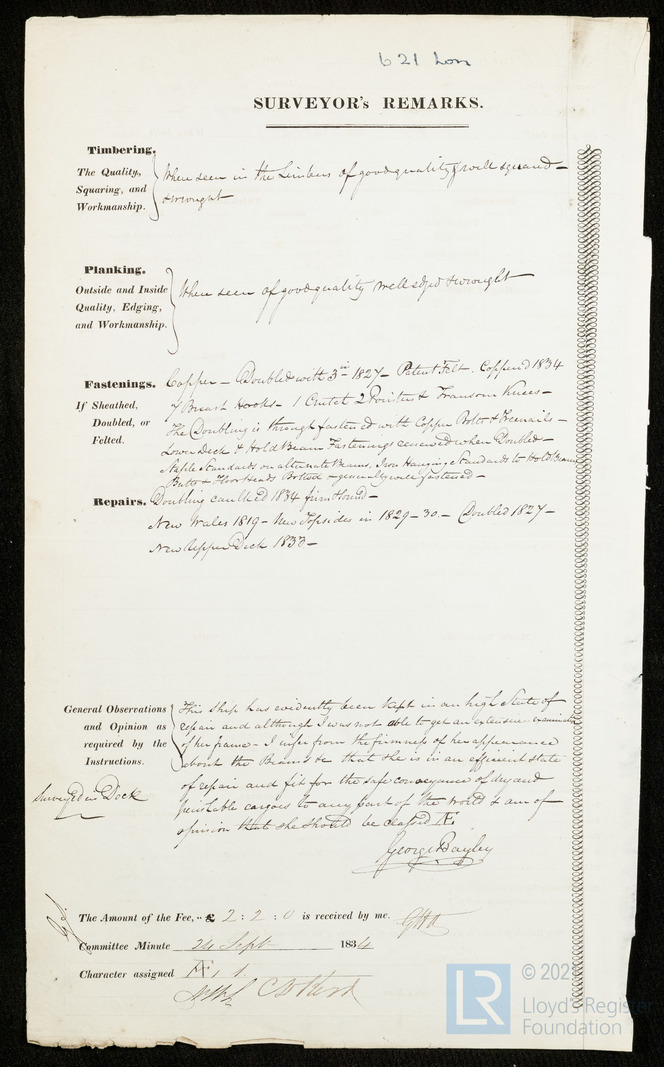 621 Lon
SURVEYOR's REMARKS.
Timbering.
The Quality,
Squaring, and
Workmanship.
When seen in the Limbers of good quality & well squared –
& wrought
Planking.
Outside and Inside
Quality, Edging,
and Workmanship.
When seen of good quality well edged & wrought
Fastenings.
If Sheathed,
Doubled, or
Felted.
Copper – Doubled with 3 in 1827 – Patent Felt. Coppered 1834
7 Breast Hooks – 1 Crutch 2 Pointers & Transom Knees –
The Doubling is through fastened with Copper Bolts & Treenails –
Lower Deck & Hold Beam Fastenings renewed when Doubled –
Staple Standards on alternate Beams, Iron Hanging Standards to Hold Beams
Butts & Floor Heads Bolted – generally well fastened –
Repairs.
Doubling caulked 1834 from
New Wales 1819 – New Topsides in 1829–30 – Doubled 1827 –
New Upper Deck 1833 –
General Observations
and Opinion as
required by the
Instructions.
This Ship has evidently been kept in an high State of
repair and although I was not able to get an extensive examination
of her frame – I infer from the firmness of her appearance
about the Beams &c that she is in an efficient state
of repair and fit for the safe conveyance of dry and
perishable cargoes to any part of the World & am of
opinion that she should be classed Æ
Surveyed in Dock
George Bayley
The Amount of the Fee, .. £ 2 : 2 : 0 is received by me,
Committee Minute 24 Sept 1834
Character assigned Æ 1
© 202
Lloyd's Register
Foundation
LR